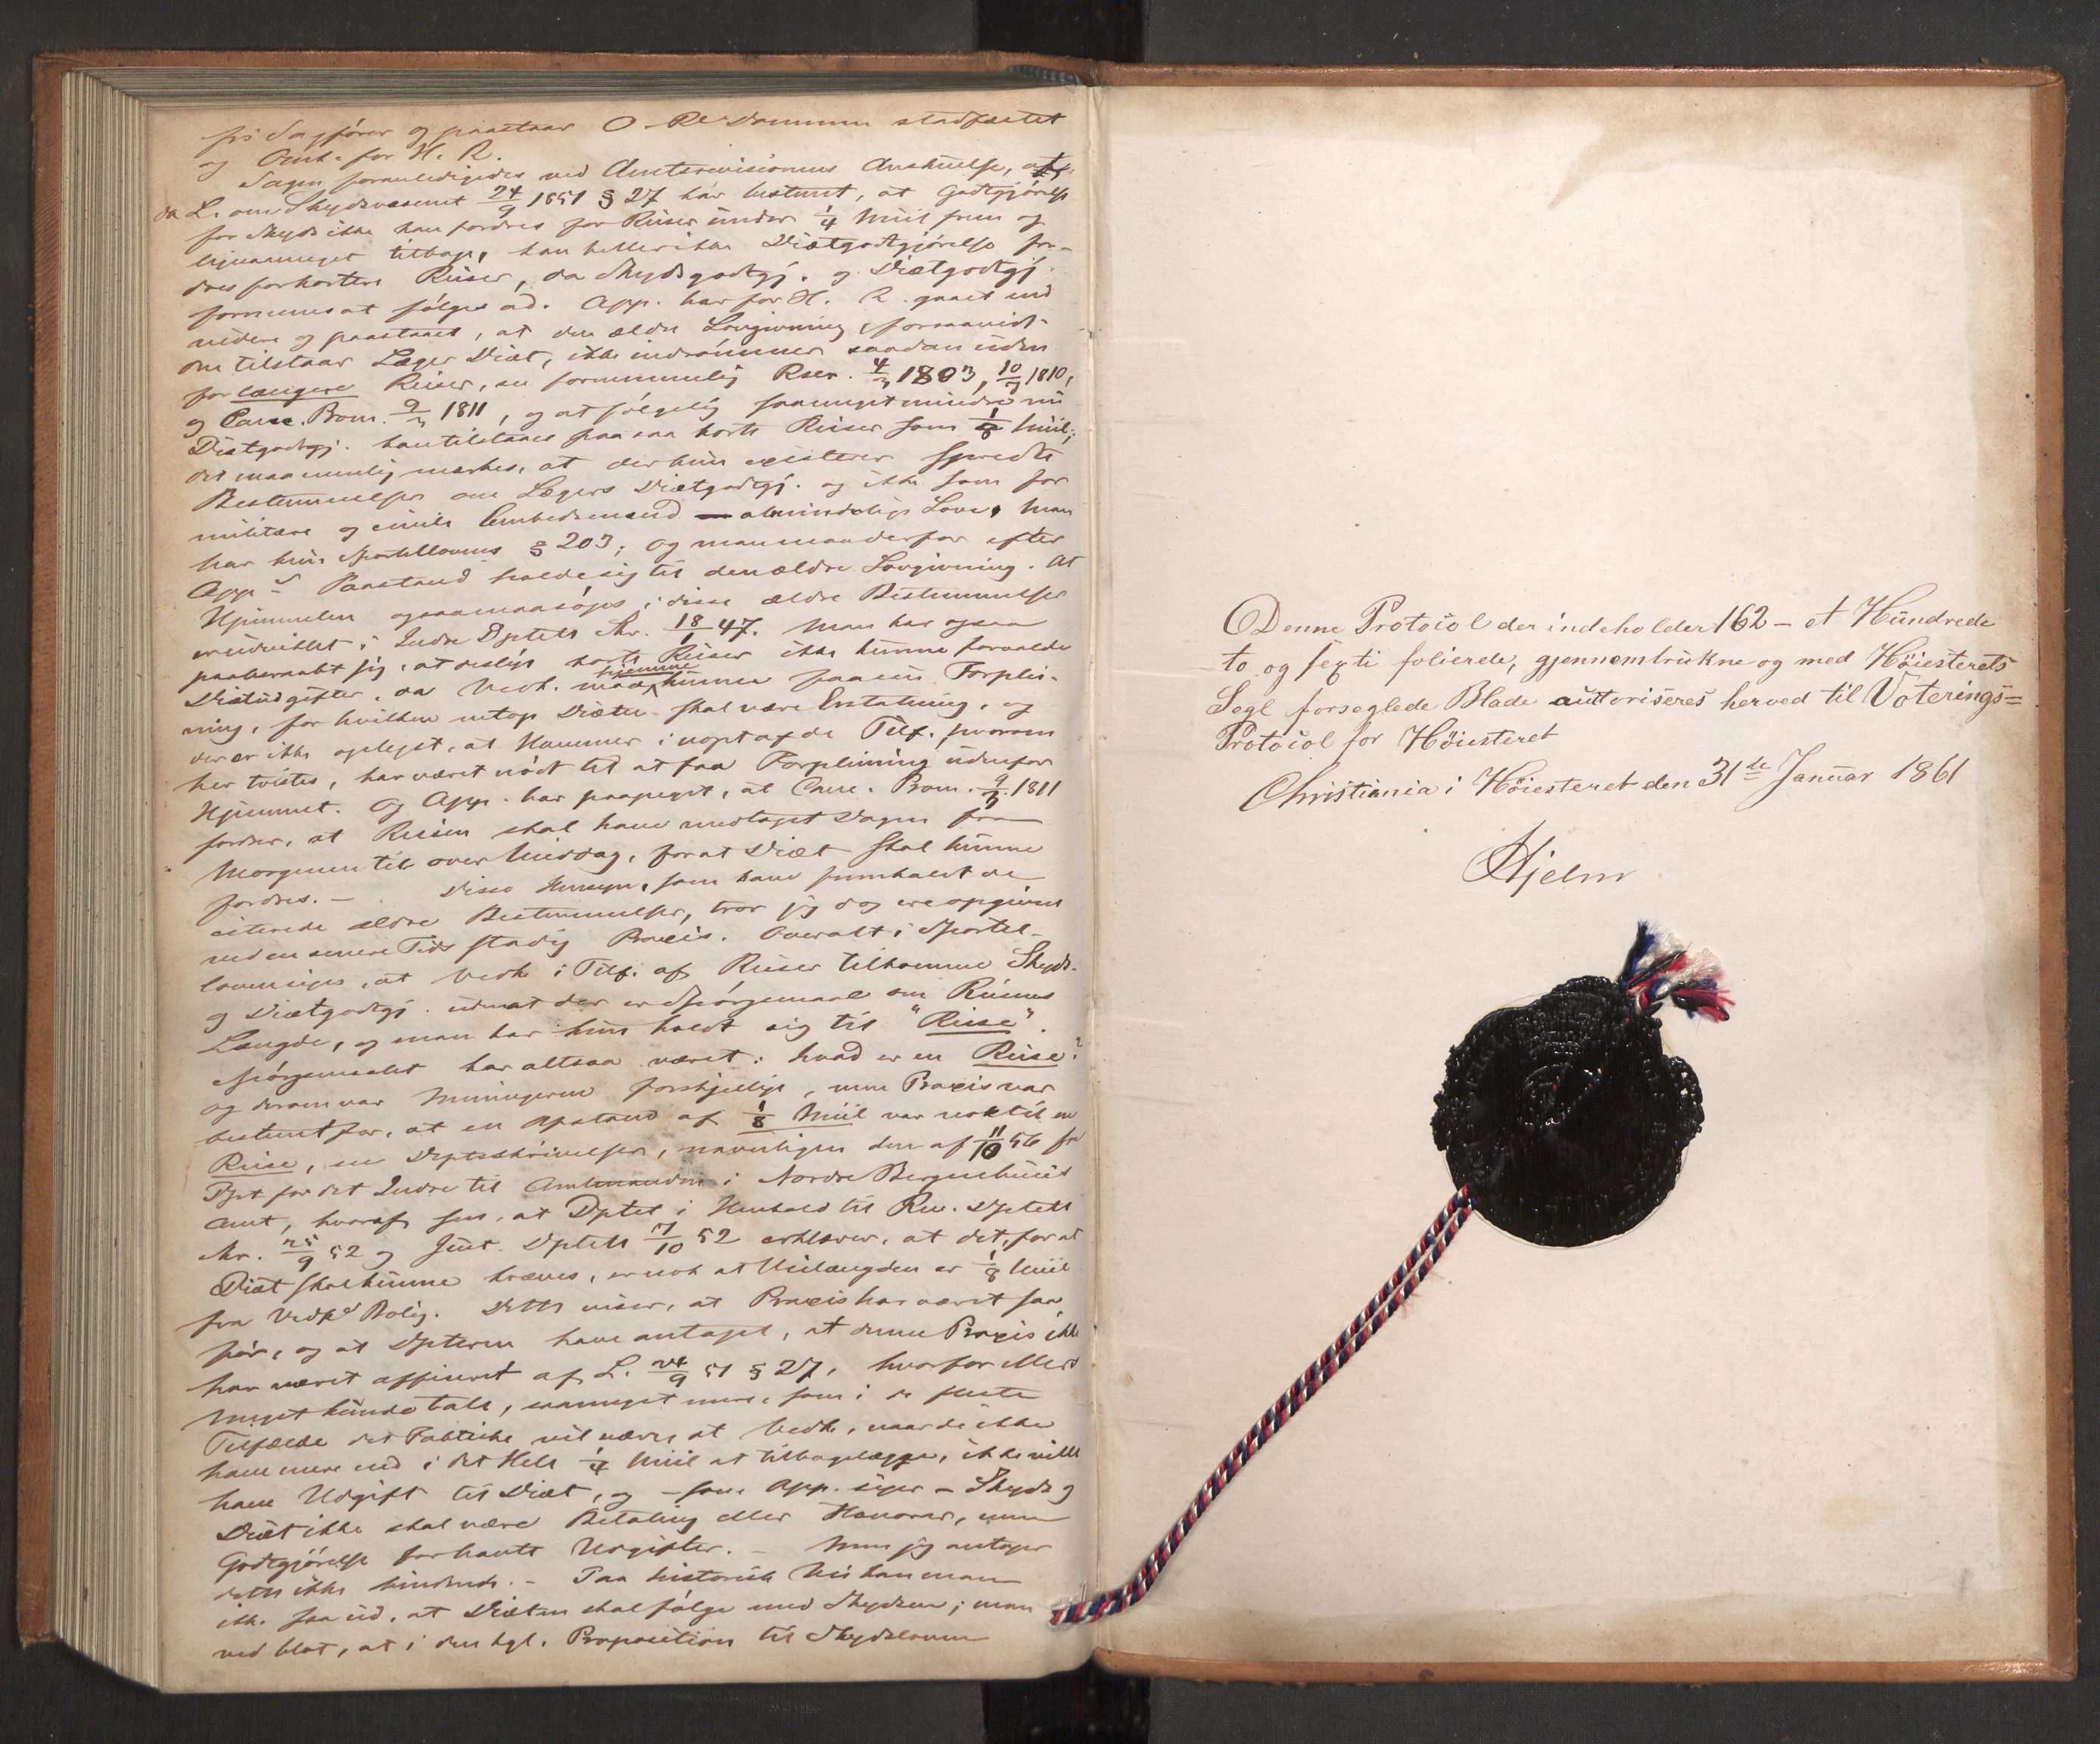 sin Sagfører og paastaaer O-Rs Dommen stadfæstet
og Omk. for H. R.
Sagen foranledigedes ved Amtsrevisionens Anskuelse, at
da L. om Skydsvæsenet 24/9 1851 § 27 har bestemt, at Godtgjørelse
for Skyds ikke kan fordres for Reiser under 1/4 Miil frem og
ligesaameget tilbage, kan heller ikke Diætgodtgjørelse for-
dres for kortere Reiser, da Skydsgodtgj. og Diætgodtgj.
formenes at følges ad. App. har for H. R. gaaet end
videre og paastaaet, at den ældre Lovgivning, forsaavidt
den tilstaar Læger Diæt, ikke indrømmer saadan uden
for længere Reiser, se fornemmelig Rscr. 4/3 1803, 10/7 1810,
og Canc. Prom. 9/3 1811, og at følgelig saameget mindre nu
Diætgodtgj. kan tilstaaes paa saa korte Reiser som 1/8 Miil;
det maa nemlig mærkes, at der kun existerer spredte
Bestemmelser om Lægers Diætgodtgj. og ikke som for
militære og civile Embedsmænd — almindelige Love. Man
har kun Sportellovens § 203; og man maa derfor efter
App.s Paastand holde sig til den ældre Lovgivning. At
Hjemmelen ogsaa maa søges i disse ældre Bestemmelser
er udviklet i Indre Dptets Skr. 18/1 47. Man har ogsaa
paaberaabt sig, at deslige korte Reiser ikke kunne forvolde
Diætudgifter, da Vedk. maa hjemme kunne faa sin Forplei-
ning, for hvilken netop Diæten skal være Erstatning, og
der er ikke oplyst, at Hammer i noget af de Tilf. hvorom
her tvistes, har været nødt til at faa Forpleining udenfor
Hjemmet. Og App. har paapeget, at Canc. Prom. 9/3 1811
fordrer, at Reisen skal have medtaget Dagen fra
Morgenen til over Middag, for at Diæt skal kunne
fordres. — Disse Hensyn, som have fremkaldt de
citerede ældre Bestemmelser, tror jeg dog ere opgivne
ved en senere Tids stadig Praxis. Overalt i Sportel-
loven siges, at Vedk. i Tilf. af Reiser tilkomme Skyds-
og Diætgodtgj. uden at der er Spørgsmaal om Reisens
Længde, og man har kun holdt sig til "Reise".
Spørgsmaalet har altsaa været: hvad er en Reise?
og derom var Meningerne forskjellige, men Praxis var
bestemt for, at en Afstand af 1/8 Miil var nok til en
Reise, se Dptsskrivelser, navnligen den af 11/10 56 fra
Dpt for det Indre til Amtmanden i Nordre Bergenhuus
Amt, hvoraf sees, at Dptet i Henhold til Rev. Dptets
Skr. 25/9 52 og Just. Dptets 7/10 52 erklærer, at det, for at
Diæt skal kunne kræves, er nok at Veilængden er 1/8 Miil
fra Vedks Bolig. Dette viser, at Praxis har været saa
før, og at Dpterne have antaget, at denne Praxis ikke
har været afficeret af L. 24/9 51 § 27, hvorfor ellers
meget kunde tale, saameget mere, som i de fleste
Tilfælde det Faktiske vil være, at Vedk., naar de ikke
have mere end i det Hele 1/4 Miil at tilbagelægge, ikke ville
have Udgift til Diæt, og — som App. siger — Skyds og
Diæt ikke skal være Betaling eller Honorar, men
Godtgjørelse for havte Udgifter. — Men jeg antager
dette ikke bindende. — Paa historisk Vei kan man
ikke faa ud, at Diæten skal følge med Skydsen; man
ved blot, at i den kgl. Proposition til Skydsloven
Denne Protocol der indeholder 162 - et Hundrede
to og sexti folierede, gjennemtrukne og med Høiesterets
Segl forseglede Blade authoriseres herved til Voterings=
Protocol for Høiesteret
Christiania i Høiesteret den 31te Januar 1861
Hjelm